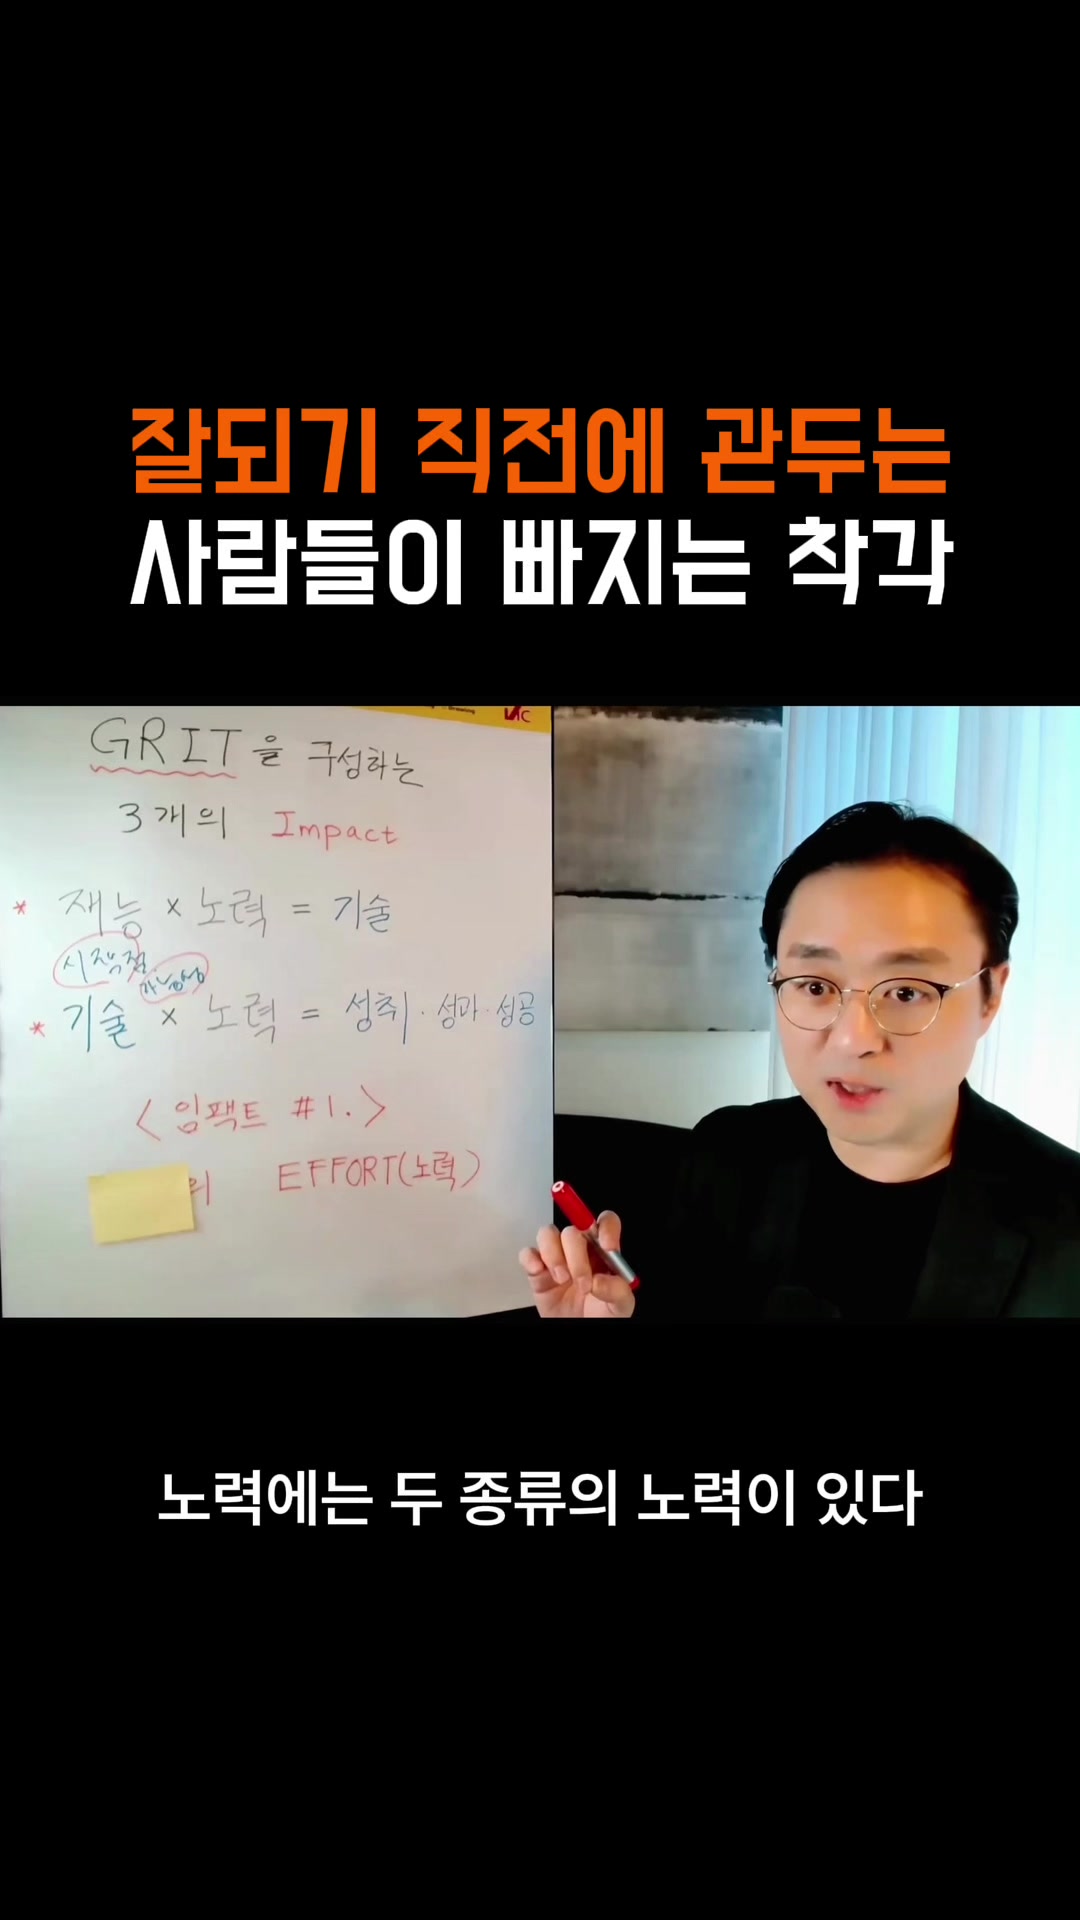 잘되기 직전에 관두는
사람들이 빠지는 착각
GRIT을 구성하는
3개의 Impact
* 재능 × 노력 = 기술
시작점
가능성
* 기술 × 노력 = 성취·성과·성공
<임팩트 #1.>
EFFORT(노력)
노력에는 두 종류의 노력이 있다